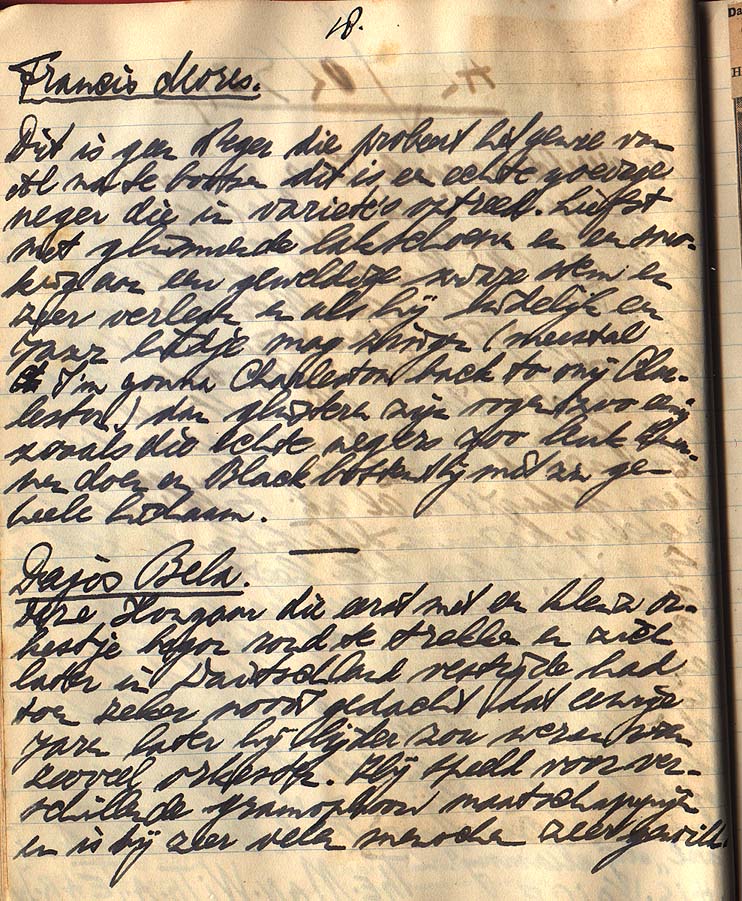 18.
Francis Mores.
Dit is geen Neger die probeert het genre van
Al na te bootsen dit is en echte goeiige
neger die in varieté's optreed. Liefst
met glimmende lakschoenen en en smo-
king aan een geweldige zware stem en
zeer verlegen en als hij eindelijk en
jazz liedje mag zingen (meestal
I'm gonna Charleston back to my Char-
leston) dan glinsteren zijn oogen zoo
zooals die echte negers zoo leuk kun-
nen doen en Black bottom hij met zn ge-
heele lichaam.
Dajos Bela.
Hongaar die eerst met en klein or-
kestje begon rond te trekken en zich
later in Duitschland vestigde had
toen zeker nooit gedacht dat eenige
jaren later hij leider zou wezen van
zooveel orkesten. Hij speelt voor ver-
schillende gramophoon maatschappijen
en is bij zeer velen menschen zeer
Da
H